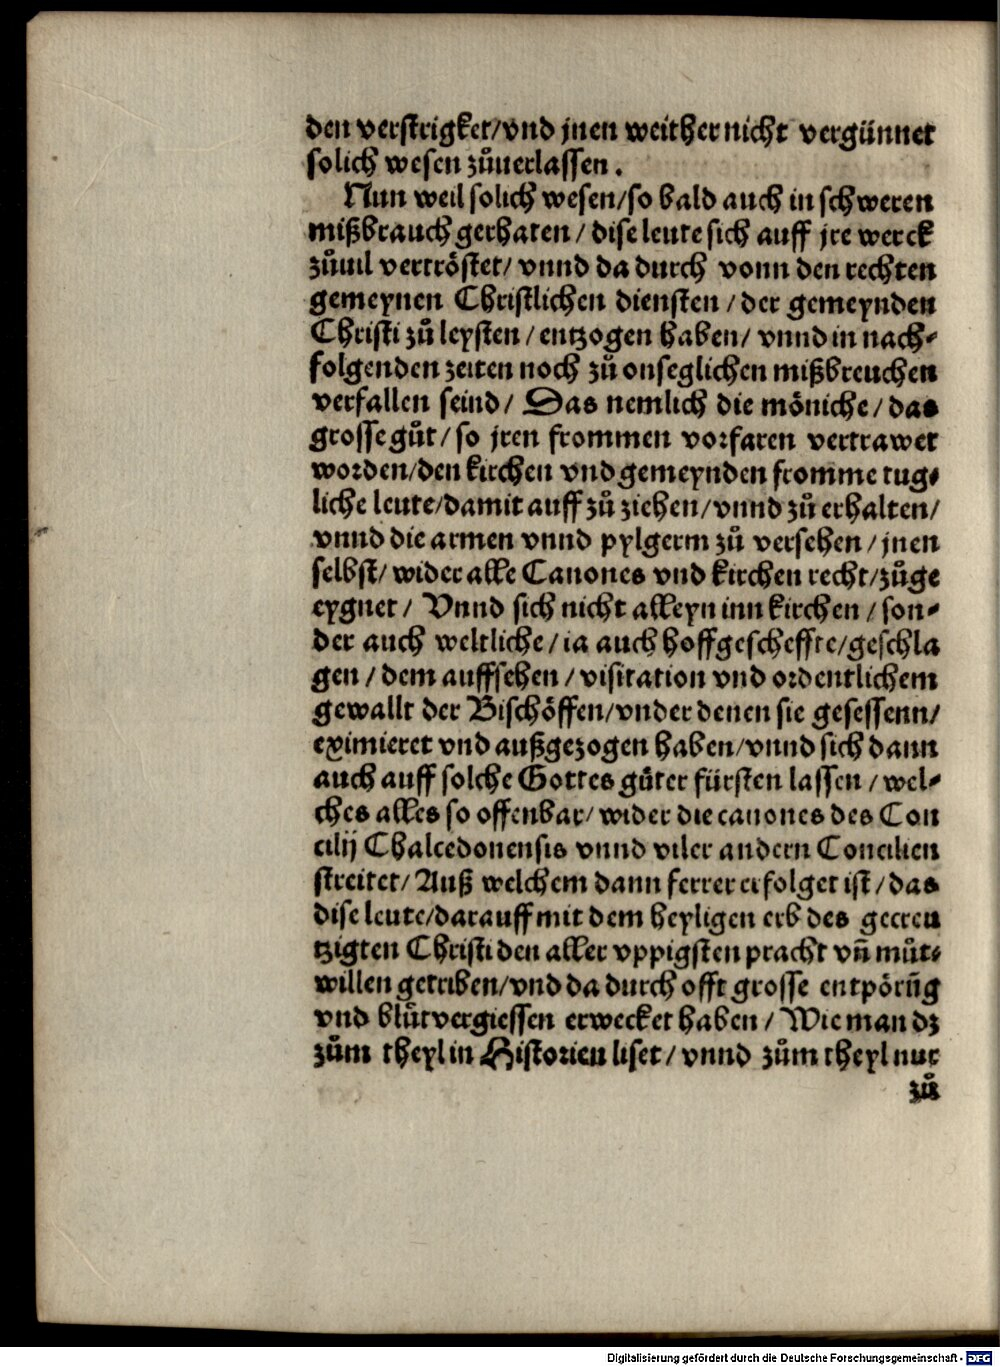 den verstrigket/vnd jnen weither nicht vergünnet
solich wesen zůuerlassen.
Nun weil solich wesen/so bald auch in schweren
mißbrauch gerhaten/dise leute sich auff jre werck
zůuil vertröstet/vnnd da durch vonn den rechten
gemeynen Christlichen diensten/der gemeynden
Christi zů leysten/entzogen haben/vnnd in nach-
folgenden zeiten noch zů onseglichen mißbreuchen
verfallen seind/Das nemlich die möniche/das
grosse gůt/so jren frommen vorfaren vertrawet
worden/den kirchen vnd gemeynden fromme tug-
liche leute/damit auff zů ziehen/vnnd zů erhalten/
vnnd die armen vnnd pylgerm zů versehen/jnen
selbst/wider alle Canones vnd kirchen recht/zůge
eygnet/Vnnd sich nicht alleyn inn kirchen/son-
der auch weltliche/ia auch hoffgescheffte/geschla
gen/dem auffsehen/visitation vnd ordentlichem
gewallt der Bischöffen/vnder denen sie gesessenn/
eximieret vnd außgezogen haben/vnnd sich dann
auch auff solche Gottes gůter fürsten lassen/wel-
ches alles so offenbar/wider die canones des Con
cilij Chalcedonensis vnnd viler andern Concilien
streitet/Auß welchem dann ferrer erfolget ist/das
dise leute/darauff mit dem heyligen erb des gecreu
tzigten Christi den aller vppigsten pracht vñ můt-
willen getriben/vnd da durch offt grosse entpörũg
vnd blůtvergiessen erwecket haben/Wie man dz
zům theyl in Historien liset/vnnd zům theyl nur
zů
Digitalisierung gefördert durch die Deutsche Forschungsgemeinschaft - DFG